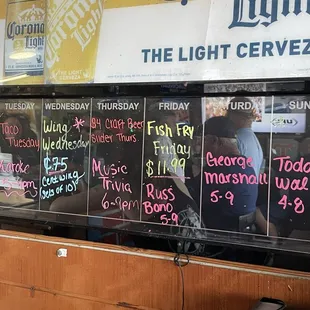 Corona
Light
Light
THE LIGHT CERVEZ
TUESDAY
Taco
Tuesday
WEDNESDAY
Wing
Wednesday
¢75
Cent wing
Sets of 10
THURSDAY
$4 Craft Beer
Slider Thurs
Music
Trivia
6-9pm
FRIDAY
Fish Fry
Friday
$11.99
Russ
Band
5-9
SATURDAY
George
Marshall
5-9
SUN
Todd
Wal
4-8